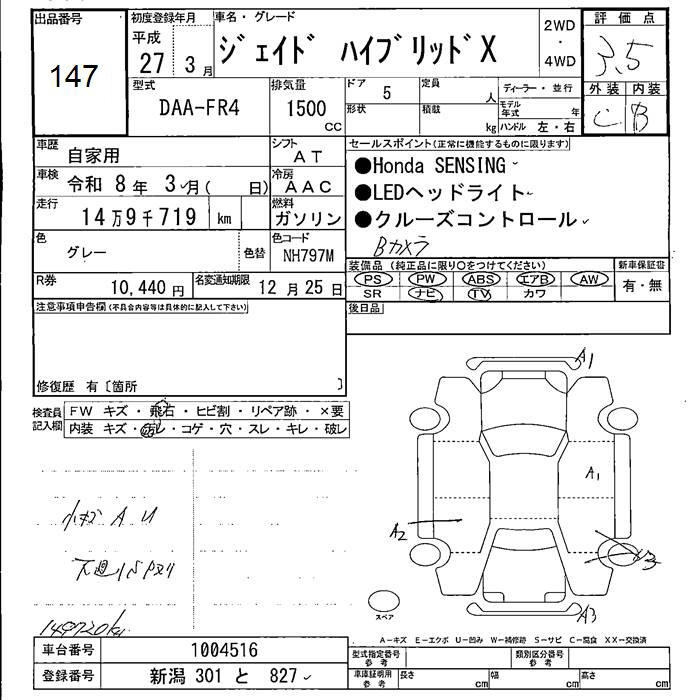 出品番号
147
初度登録年月
平成
27 3月
車名・グレード
ジェイド ハイブリッドX
2WD
・
4WD
評価点
3.5
外装 内装
C B
型式
DAA-FR4
排気量
1500
CC
ドア
5
形状
定員
人
積載
kg
ディーラー・並行
モデル年式 年
ハンドル 左・右
車歴
自家用
シフト
AT
車検
令和 8年 3月( 日)
冷房
AAC
走行
14万9千719 km
燃料
ガソリン
色
グレー
色替
色コード
NH797M
R券
10,440円
名変通知期限
12月25日
セールスポイント(正常に機能するものに限ります)
●Honda SENSING
●LEDヘッドライト
●クルーズコントロール
Bカメラ
装備品 (純正品に限り○をつけてください)
PS PW ABS エアB AW
SR ナビ TV カワ
新車保証書
有・無
後日品
注意事項申告欄(不具合内容等は具体的に記入して下さい)
修復歴 有〔箇所 〕
検査員
記入欄
FW キズ・飛石・ヒビ割・リペア跡・×要
内装 キズ・汚れ・コゲ・穴・スレ・キレ・破レ
小キズ A U
149720km
A1
A1
A2
A3
スペア
A-キズ E-エクボ U-凹み W-補修跡 S-サビ C-腐食 XX-交換済
車台番号
1004516
登録番号
新潟 301 と 827
型式指定番号
参考
類別区分番号
参考
車庫証明用
参考
長さ cm
幅 cm
高さ cm